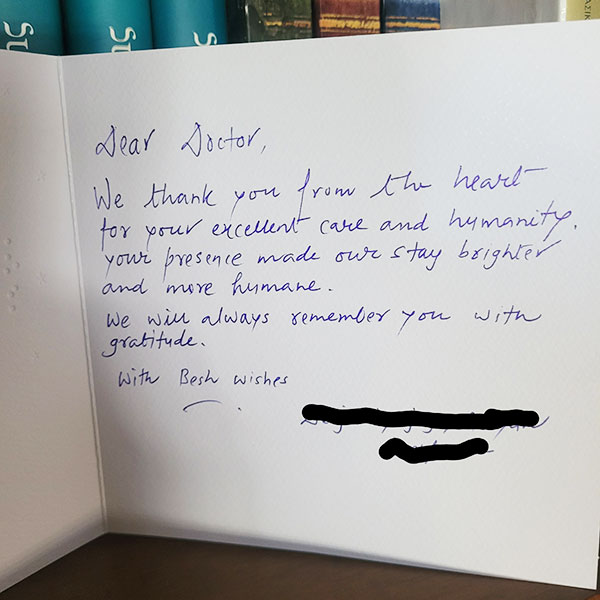 Dear Doctor,
We thank you from the heart
for your excellent care and humanity.
your presence made our stay brighter
and more humane.
We will always remember you with
gratitude.
With Best wishes